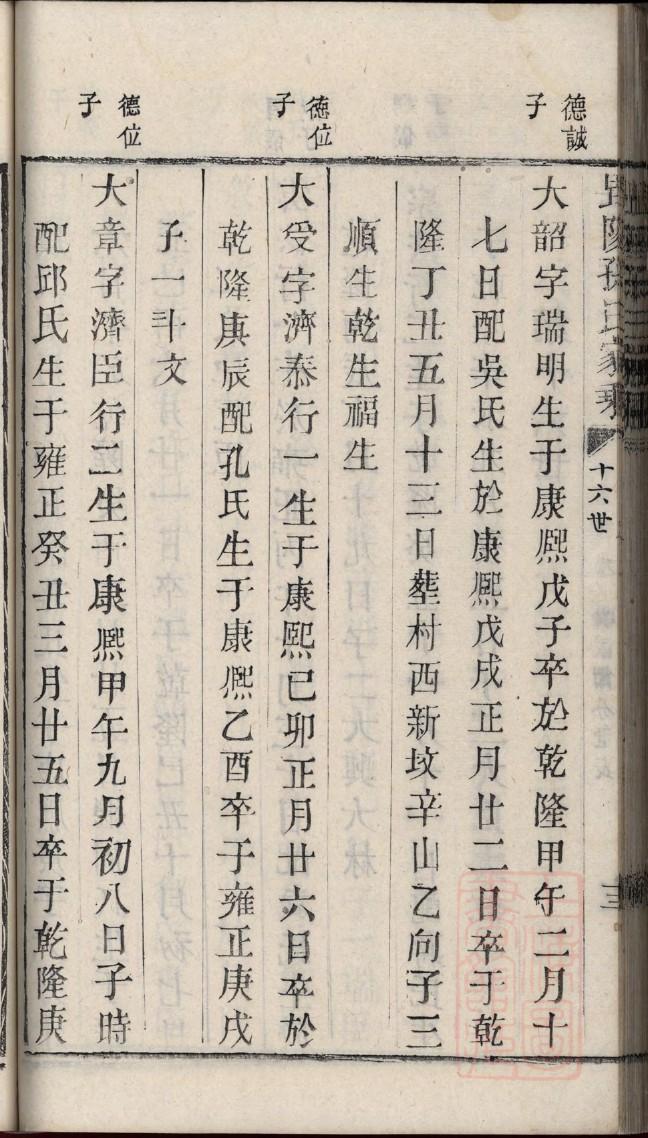 孫氏家乘
十六世
三
德誠
子
大韶字瑞明生于康熙戊子卒於乾隆甲午二月十
七日配吳氏生於康熙戊戌正月廿二日卒于乾
隆丁丑五月十三日塟村西新坟辛山乙向子三
順生乾生福生
德位
子
大受字濟泰行一生于康熙己卯正月廿六日卒於
乾隆庚辰配孔氏生于康熙乙酉卒于雍正庚戌
子一斗文
德位
子
大章字濟臣行二生于康熙甲午九月初八日子時
配邱氏生于雍正癸丑三月廿五日卒于乾隆庚